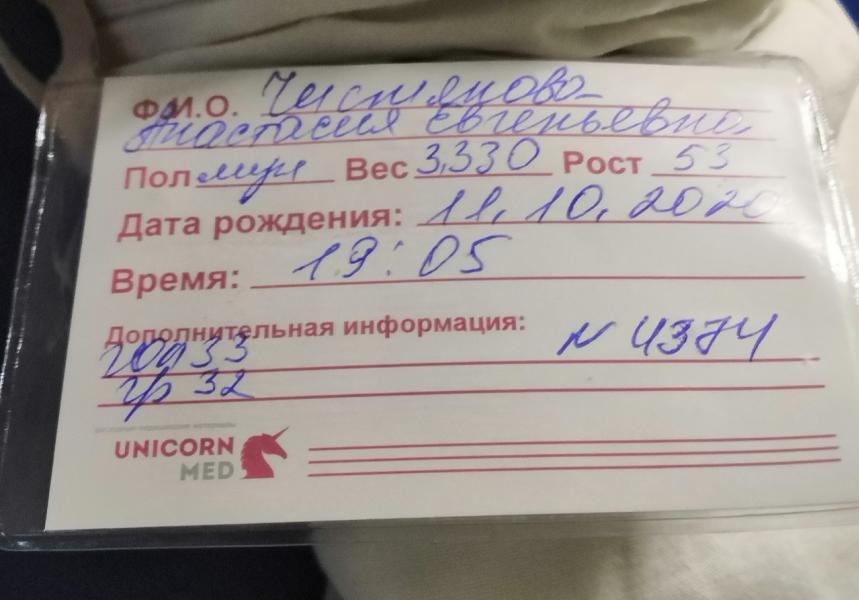 Ф.И.О. Чистякова
Анастасия Евгеньевна
Пол муж Вес 3,330 Рост 53
Дата рождения: 11.10.2020
Время: 19:05
Дополнительная информация:
год 33 N 4374
гр 32
UNICORN
MED